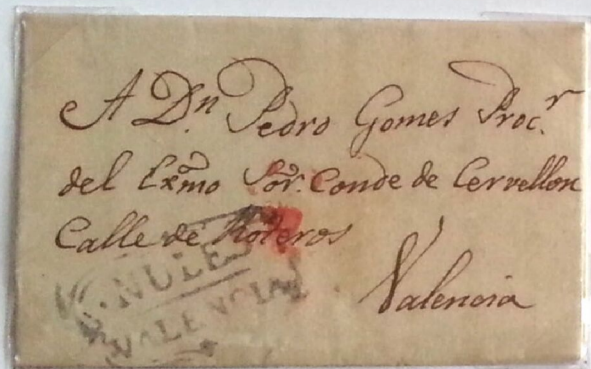 A Dn. Pedro Gomes Procr.
del Exmo Sor. Conde de Cervellon
Calle de Roteros
Valencia
NULES
VALENCIA